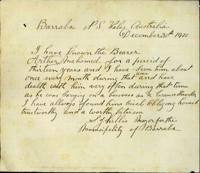 Barraba N S Wales Australia
December 30th 1901
I have known the Bearer
Arthur Mahomed for a period of
thirteen years and I have seen him about
once every month during that time and have
dealt with him very often during that time
as he was carrying on a business as a
I have always found him thoroughly honest
trustworthy and a worthy citizen
Municipality of Barraba